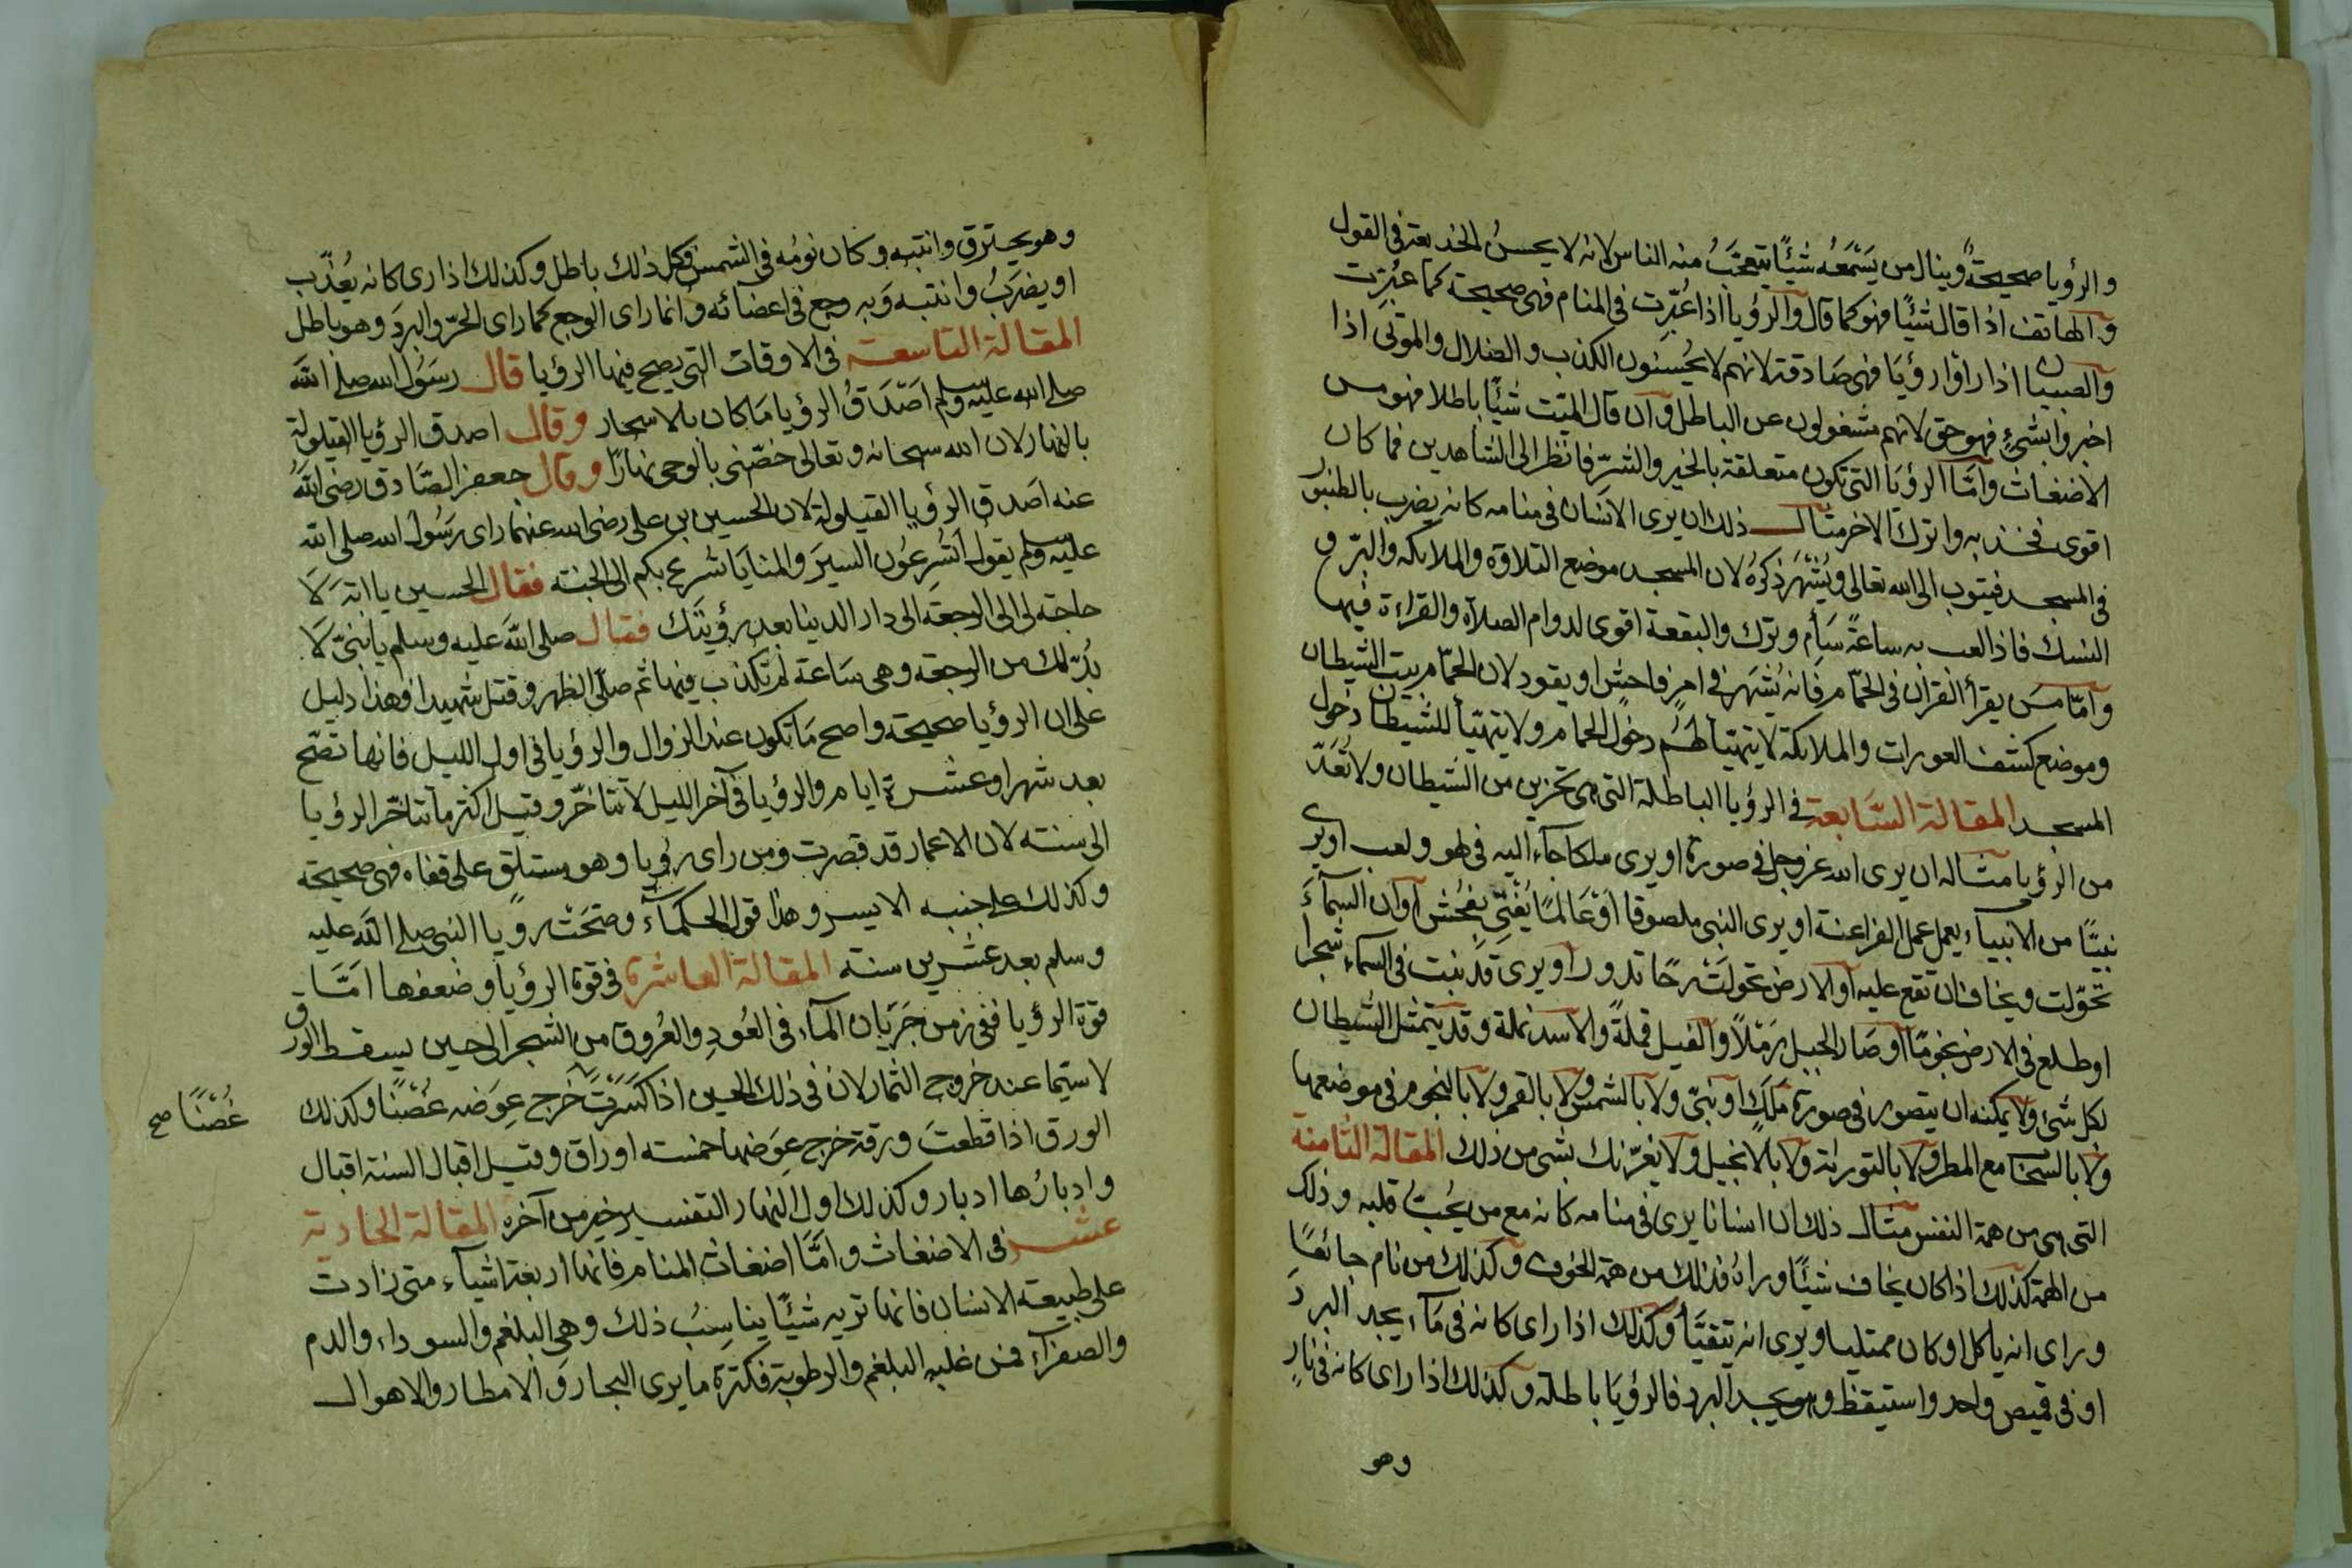 والرؤيا صحيحة وينال من يسمعه شيئًا يتعجب منه الناس لانه لا يحسن الخديعة في القول
والهاتف اذا قال شيئًا فهو كما قال والرؤيا اذا عُبّرت في المنام فهى صحيحة كما عُبّرت
والصبيان اذا راوا رؤيا فهى صادقة لانهم لا يُحسنون الكذب والضلال والموتى اذا
اخبروا بشئ فهو حق لانهم مشغولون عن الباطل وان قال الميّت شيئًا باطلا فهو من
الاضغاث وامّا الرؤيا التى تكون متعلقة بالخير والشرّ فانظر الى الشاهدين فما كان
اقوى فخذ به واترك الاخر مثال ذلك ان يرى الانسان في منامه كانه يضرب بالطنبور
في المسجد فيتوب الى الله تعالى ويُشْهَر ذكرُه لان المسجد موضع التلاوة والملائكة والبرّ و
النسك فاذا لعب به ساعةً سَأِم وترك والبقعة اقوى لدوام الصلاة والقراءة فيها
وامّا من يقرأ القرآن في الحمّام فانه يُشهَر في امرٍ فاحش او يقود لان الحمّام بيت الشيطان
وموضع كشف العورات والملائكة لا يتهيّأ لهم دخول الحمام ولا يتهيّأ للشيطان دخول
المسجد المقالة السّابعة في الرؤيا الباطلة التى هى تحزين من الشيطان ولا تُعَدّ
من الرؤيا مثاله ان يرى الله عزوجل في صورة او يرى ملكا جاء اليه في لهو ولعب او يرى
نبيّا من الانبياء يعمل عمل الفراعنة او يرى النبى ملصوقا او عَالمًا يُغنّي بفُحْش او ان السمآء
تحوّلت ويخاف ان تقع عليه او الارض تحولت رحًا تدور او يرى قد نبت في السماء شجرا
او طلع في الارض نجومًا او صار الجبل رَمْلاً والفيل قملةً والاسد نملة وقد يتمثل الشيطان
لكل شئ ولا يمكنه ان يتصور في صورة مَلَكٍ او نبىّ ولا بالشمس ولا بالقمر ولا بالنجوم في موضعها
ولا بالسحاب مع المطر ولا بالتورىة ولا بالانجيل ولا يغرّنك بشئ من ذلك المقالة الثامنة
التى هى من همة النفس مثال ذلك ان انسانا يرى في منامه كانه مع من يُحبّ قلبه وذلك
من الهمة كذلك اذا كان يخاف شيئًا وراه فذلك من همة الخوف وكذلك من نام جائعًا
وراى انه ياكل او كان ممتليا ويرى انه يتقيّأ وكذلك اذا راى كانه في مآء يجد البردَ
او في قميص واحد واستيقظ وهو يجد البرد فالرؤيا باطلة وكذلك اذا راى كانه في نارٍ
وهو
وهو يحترق وانتبه وكان نومُه في الشمس فكل ذلك باطل وكذلك اذا راى كانه يُعذّب
او يضرَبُ وانتبه وَبِهِ وجع في اعضائه وانما راى الوجع كما راى الحرّ والبردَ وهو باطل
المقالة التاسعة في الاوقات التى يصح فيها الرؤيا قال رسَوُل الله صلى الله
صلى الله عليه وسلم اَصْدَقُ الرؤيا مَا كان بالاسحار وقال اصدق الرؤيا القيلولة
بالنهار لان الله سبحانه وتعالى خصّنى بالوحى نهارًا وقال جعفر الصّادق رضى الله
عنه اصدق الرؤيا القيلولة لان الحسين بن على رضى الله عنهما راى رسَوُل الله صلى الله
عليه وسلم يقول اَتُسْرِعُون السيرَ والمنايَا تسرع بكم الى الجنة فقال الحسين يا ابة لَا
حاجة لى الى الرجعة الى دار الدينا بعد رؤيتَك فقال صلى الله عليه وسلم يا بنىّ لَا
بُدّ لك من الرجعة وهى سَاعة لم تكذب فيها ثم صلّى الظهر وقتل شهيدا فهذا دليل
على ان الرؤيا صحيحة واصح مَا تكون عند الزوال والرؤيا في اول الليل فانها تصّح
بعد شهر او عشرة ايام والرؤيا في آخر الليل لا تتاخّر وقيل اكثر ما تتاخّر الرؤيا
الى سنة لان الاعمار قد قصرت ومن راى رؤيا وهو مستلق على قفاه فهى صحيحة
وكذلك على جنبه الايسر وهذا قول الحكماء وصَحّت رؤيا النبى صلى الله عليه
وسلم بعد عشرين سنة المقالة العاشرة في قوة الرؤيا وضعفها امّا
قوة الرؤيا ففى زمن جَرَيَان المآء في العُودِ والعُروق من الشجر الى حين يسقط الورق
لا سيّما عند خروج الثمار لان في ذلك الحين اذا كسَرَتَ خَرج عِوَضه غُصْنًا وكذلك
غُصْنًا صح
الورق اذا قطعتَ ورقة خرج عِوَضها خمسة اوراق وقيل اقبال السنة اقبال
وادبارُها ادبار وكذلك اول النهار التفسير خير من آخره المقالة الحادية
عشر في الاضغاث وامّا اضغاث المنام فانها اربعة اشيآء متى زادت
على طبيعة الانسان فانها تريه شيئًا يناسِبُ ذلك وهى البلغم والسوداء والدم
والصفرآء فمن غلبه البلغم والرطوبة فكثرة ما يرى البحار والامطار والاهوال